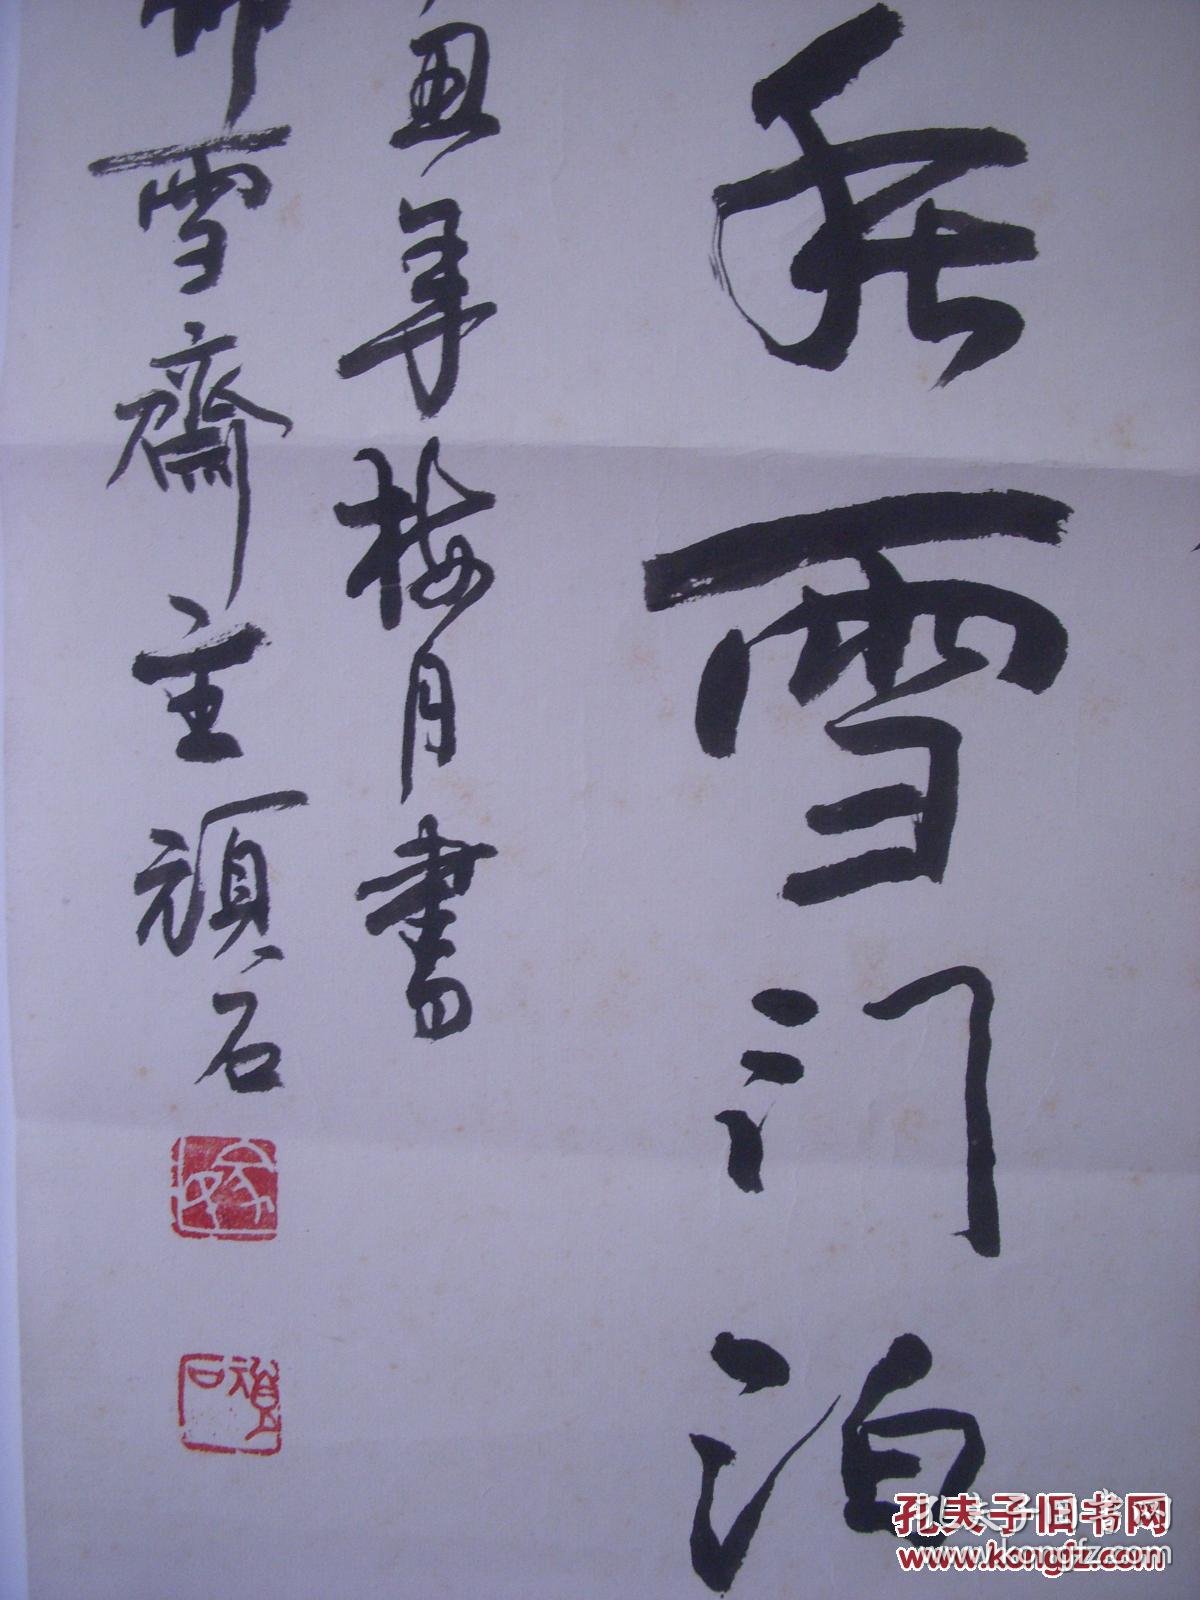 秋雪门泊
丑年梅月书
雪齋主頑石
頑石
孔夫子旧书网
www.kongfz.com